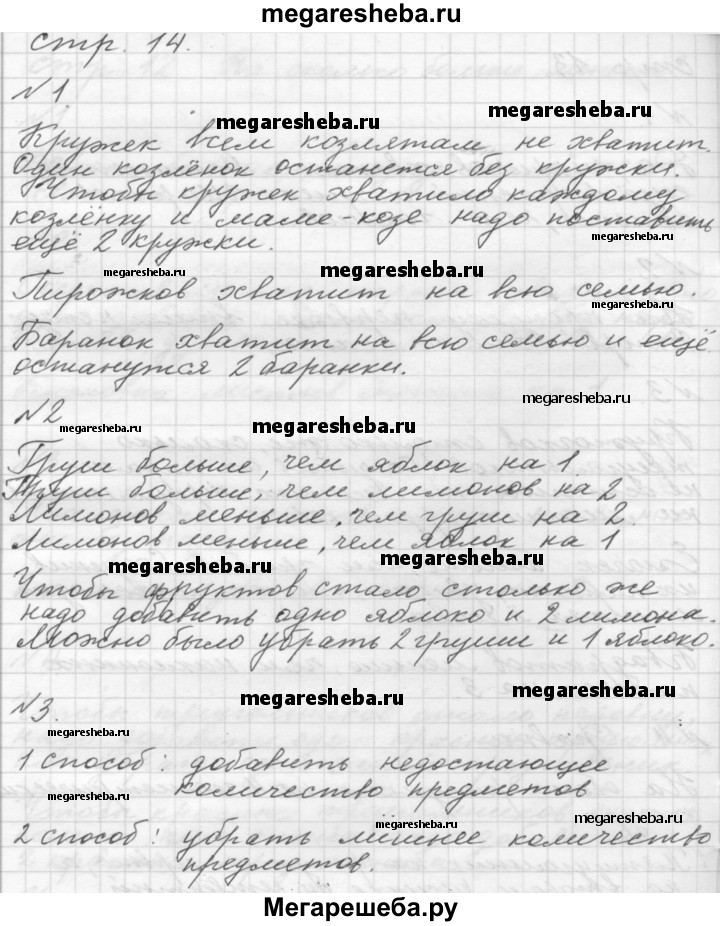 megaresheba.ru
стр. 14.
№1.
megaresheba.ru
megaresheba.ru
Кружек всем козлятам не хватит.
Один козлёнок останется без кружки.
Чтобы кружек хватило каждому
козлёнку и маме-козе надо поставить
ещё 2 кружки.
megaresheba.ru
megaresheba.ru
megaresheba.ru
Пирожков хватит на всю семью.
megaresheba.ru
Баранок хватит на всю семью и ещё
останутся 2 баранки.
megaresheba.ru
№2
megaresheba.ru
megaresheba.ru
megaresheba.ru
Груш больше, чем яблок на 1.
Груш больше, чем лимонов на 2
Лимонов меньше, чем груш на 2.
Лимонов меньше, чем яблок на 1
megaresheba.ru
megaresheba.ru
Чтобы фруктов стало столько же
надо добавить одно яблоко и 2 лимона.
Можно было убрать 2 груши и 1 яблоко.
megaresheba.ru
megaresheba.ru
№3.
megaresheba.ru
megaresheba.ru
1 способ: добавить недостающее
количество предметов
megaresheba.ru
megaresheba.ru
megaresheba.ru
2 способ: убрать лишнее количество
предметов.
Мегарешеба.ру